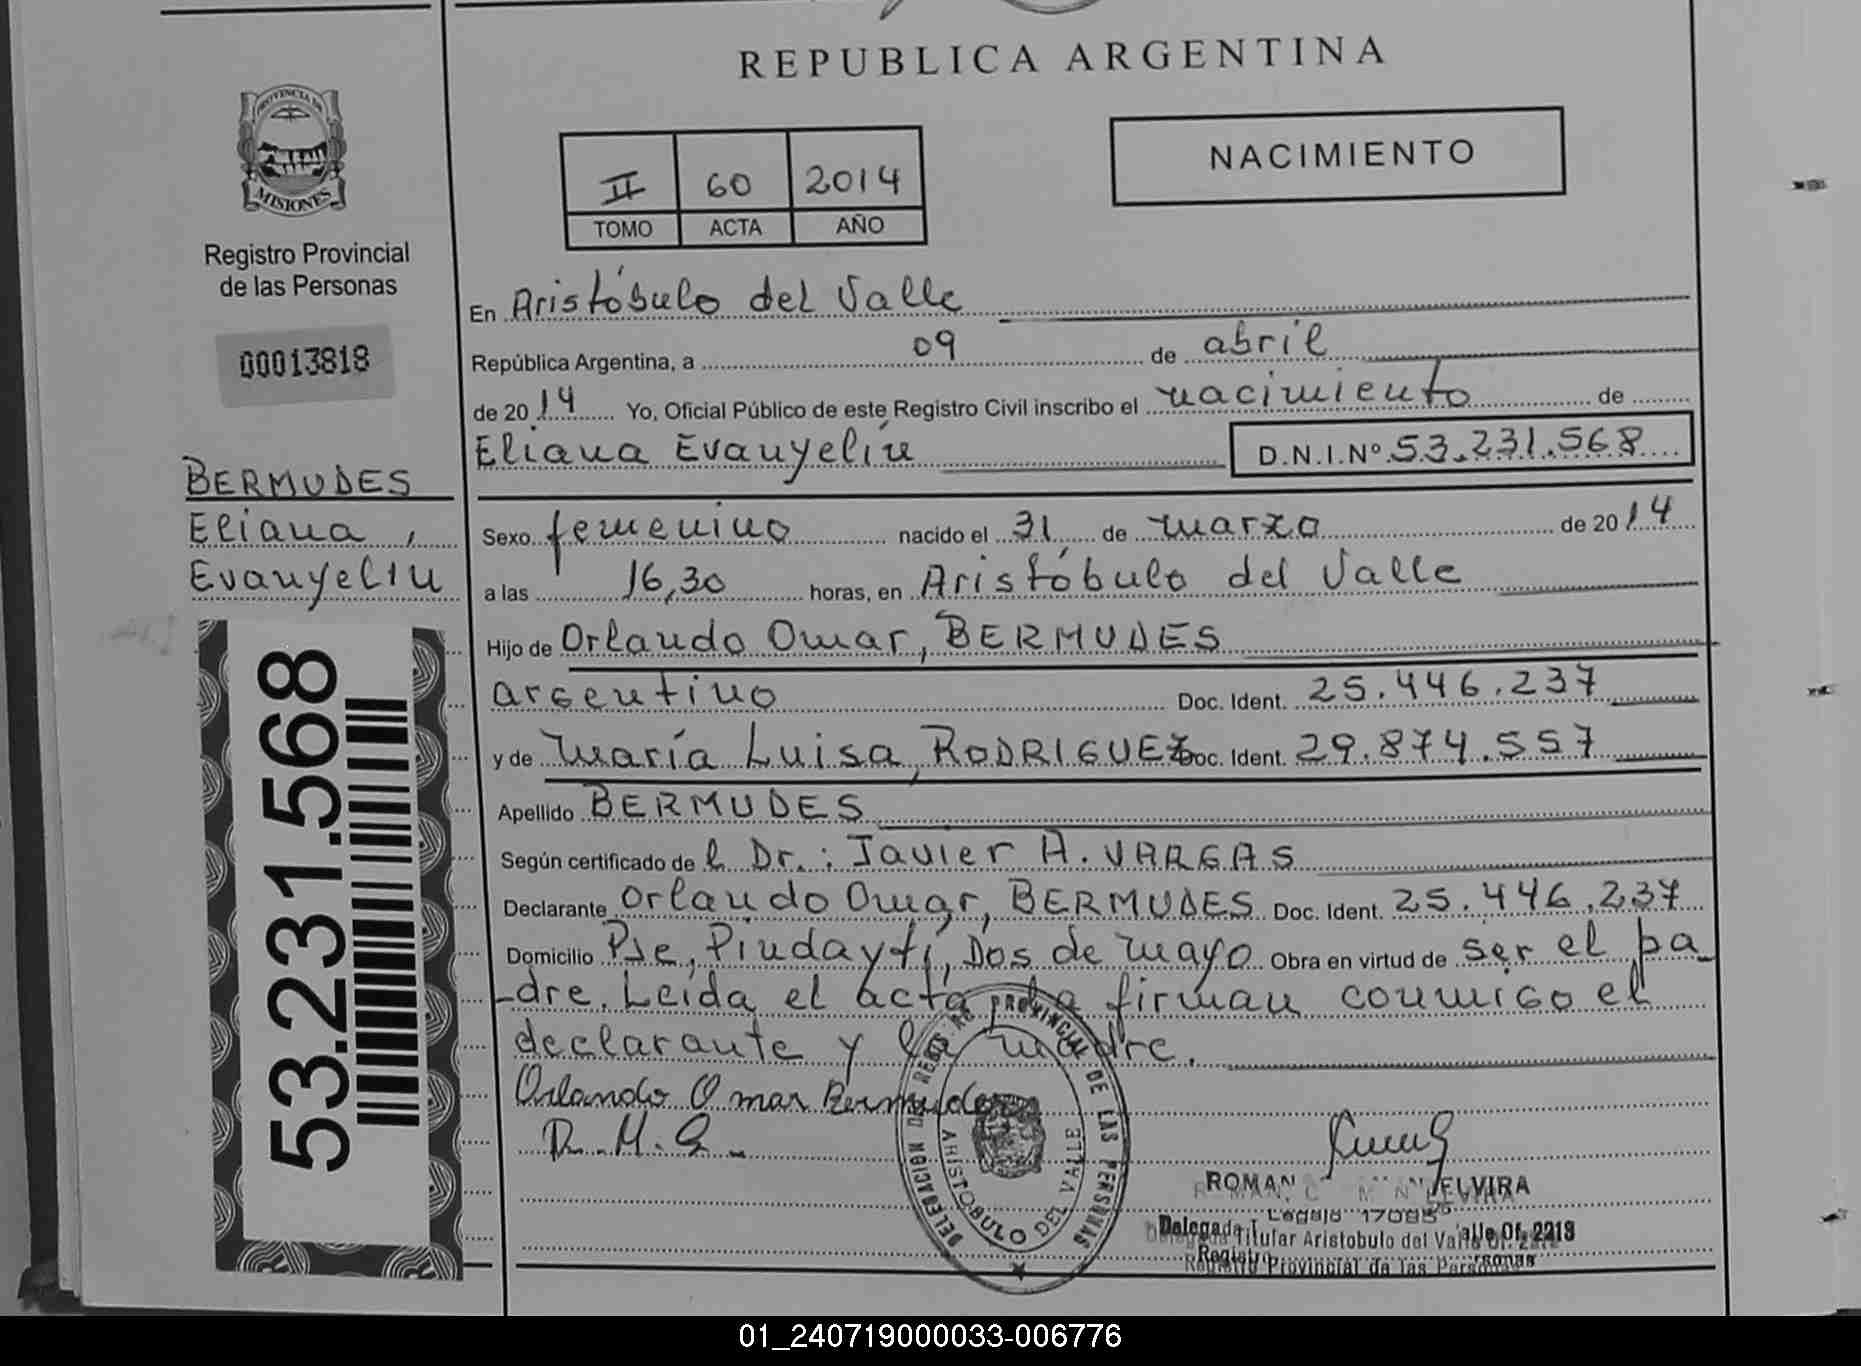 REPUBLICA ARGENTINA
PROVINCIA DE
MISIONES
Registro Provincial
de las Personas
00013818
II 60 2014
TOMO ACTA AÑO
NACIMIENTO
En Aristóbulo del Valle
República Argentina, a 09 de abril
de 2014 Yo, Oficial Público de este Registro Civil inscribo el nacimiento de
Eliana Evanyelin D.N.I.Nº 53.231.568
BERMUDES
Eliana,
Evanyelin
53.231.568
Sexo femenino nacido el 31 de marzo de 2014
a las 16,30 horas, en Aristóbulo del Valle
Hijo de Orlando Omar, BERMUDES
argentino Doc. Ident. 25.446.237
y de María Luisa, RODRIGUEZ Doc. Ident. 29.874.557
Apellido BERMUDES
Según certificado de l Dr.: Javier A. VARGAS
Declarante Orlando Omar, BERMUDES Doc. Ident. 25.446.237
Domicilio Pje, Pindaytí, Dos de mayo Obra en virtud de ser el pa_
_dre. Leída el acta, la firman conmigo el
declarante y la madre.
Orlando Omar Bermudes
R. M. L.
DELEGACION DE REGISTRO PROVINCIAL DE LAS PERSONAS
ARISTOBULO DEL VALLE
ROMAN ELVIRA
Legajo
Delegada Titular Aristobulo del Valle Of. 2218
Registro Provincial de las Personas
01_240719000033-006776